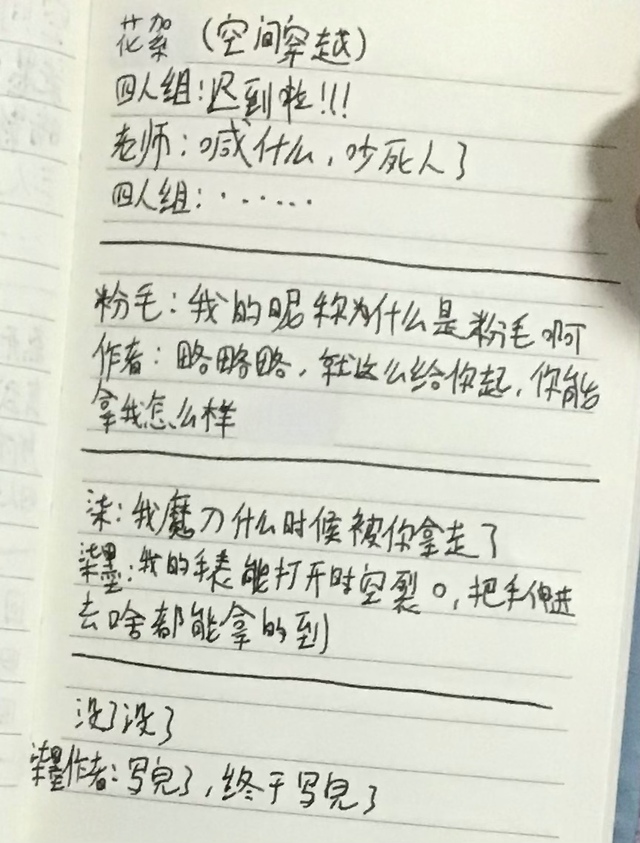 花絮（空间穿越）
四人组：迟到啦!!!
老师：喊什么，吵死人了
四人组：······
粉毛：我的昵称为什么是粉毛啊
作者：略略略，就这么给你起，你能
拿我怎么样
柒：我魔刀什么时候被你拿走了
柒墨：我的手表能打开时空裂口，把手伸进
去啥都能拿的到
没了没了
柒墨作者：写完了，终于写完了